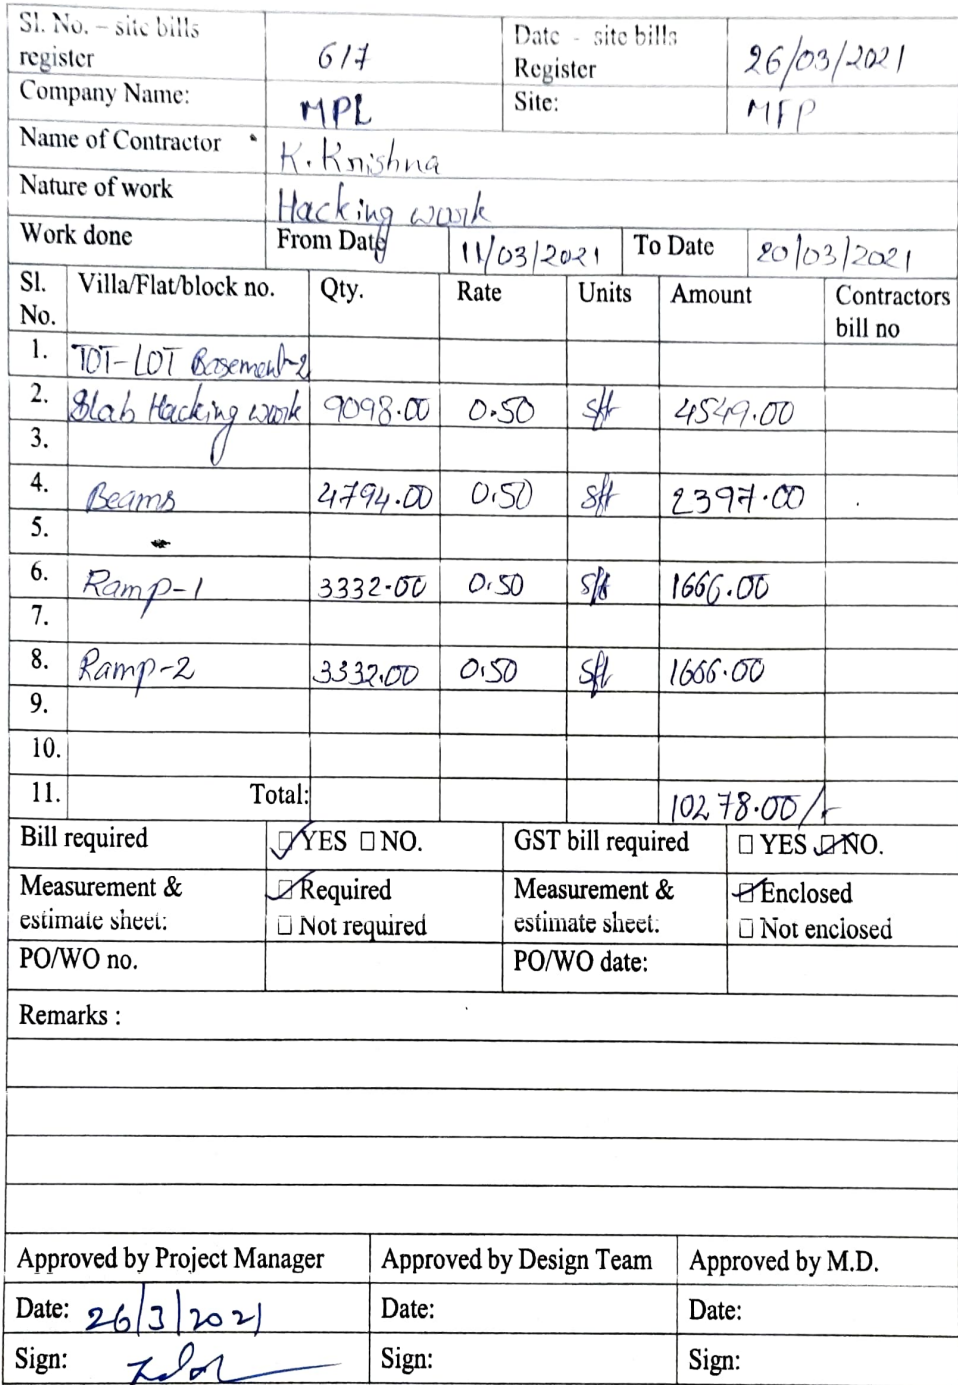 Sl. No. – site bills register 617 Date - site bills Register 26/03/2021
Company Name: MPL Site: MFP
Name of Contractor K. Krishna
Nature of work Hacking work
Work done From Date 11/03/2021 To Date 20/03/2021
Sl. No. Villa/Flat/block no. Qty. Rate Units Amount Contractors bill no
1. TOT-LOT Basement-2
2. Slab Hacking work 9098.00 0.50 sft 4549.00
3.
4. Beams 4794.00 0.50 sft 2397.00
5.
6. Ramp-1 3332.00 0.50 sft 1666.00
7.
8. Ramp-2 3332.00 0.50 sft 1666.00
9.
10.
11. Total: 10278.00/-
Bill required YES NO. GST bill required YES NO.
Measurement & estimate sheet: Required Not required Measurement & estimate sheet: Enclosed Not enclosed
PO/WO no. PO/WO date:
Remarks :
Approved by Project Manager Approved by Design Team Approved by M.D.
Date: 26/3/2021 Date: Date:
Sign: Sign: Sign: